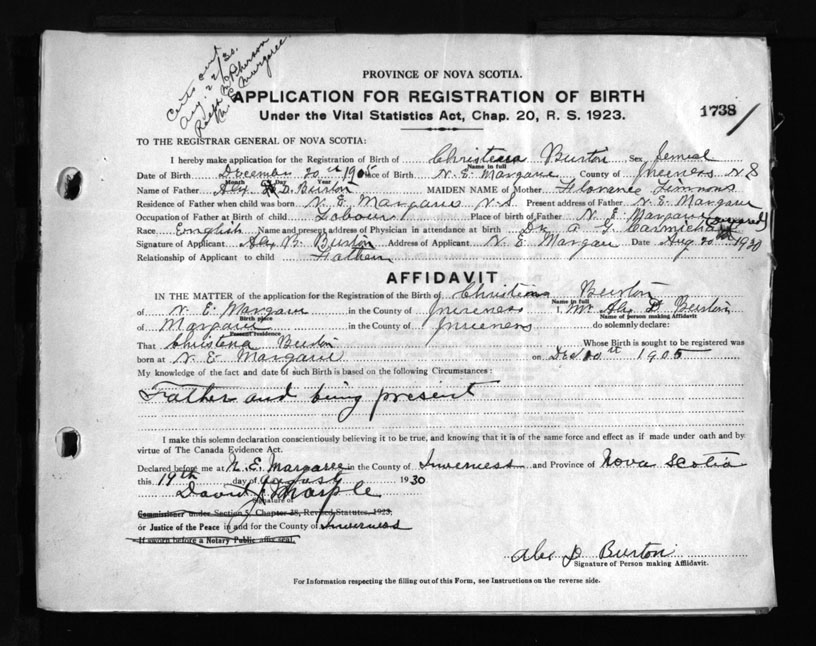 Certs sent
Aug. 22/30
Ralph McPherson
N. E. Margaree
PROVINCE OF NOVA SCOTIA.
APPLICATION FOR REGISTRATION OF BIRTH
1738
Under the Vital Statistics Act, Chap. 20, R. S. 1923.
TO THE REGISTRAR GENERAL OF NOVA SCOTIA:
I hereby make application for the Registration of Birth of Christena Burton Sex Femeal
Name in full
Date of Birth December 20th 1905 Place of Birth N. E. Margarie County of N S
Month Day Year
Name of Father Alex D. Burton MAIDEN NAME of Mother Florence Timmons
Residence of Father when child was born N. E. Margarie N.S. Present address of Father N. E. Margarie
Occupation of Father at Birth of child Labour Place of birth of Father N. E. Margarie
Race English Name and present address of Physician in attendance at birth Dr. A G Carmichael
Signature of Applicant Alex D. Burton Address of Applicant N. E. Margarie Date Aug 20 1930
Relationship of Applicant to child Father
AFFIDAVIT
IN THE MATTER of the application for the Registration of the Birth of Christena Burton
Name in full
of N. E. Margarie in the County of I, Mr Alex D Burton
Birth place Name of person making Affidavit
of Margarie in the County of do solemnly declare:
Present residence
That Christena Burton Whose Birth is sought to be registered was
born at N. E. Margarie on Dec 20th 1905
My knowledge of the fact and date of such Birth is based on the following Circumstances:
Father and being present
I make this solemn declaration conscientiously believing it to be true, and knowing that it is of the same force and effect as if made under oath and by
virtue of The Canada Evidence Act.
Declared before me at N. E. Margaree in the County of Inverness and Province of Nova Scotia
this 19th day of August 1930
David J Marple
Signature of
Commissioner under Section 5, Chapter 38, Revised Statutes, 1923,
or Justice of the Peace in and for the County of Inverness
If sworn before a Notary Public affix seal.
Alex D Burton
Signature of Person making Affidavit.
For Information respecting the filling out of this Form, see Instructions on the reverse side.